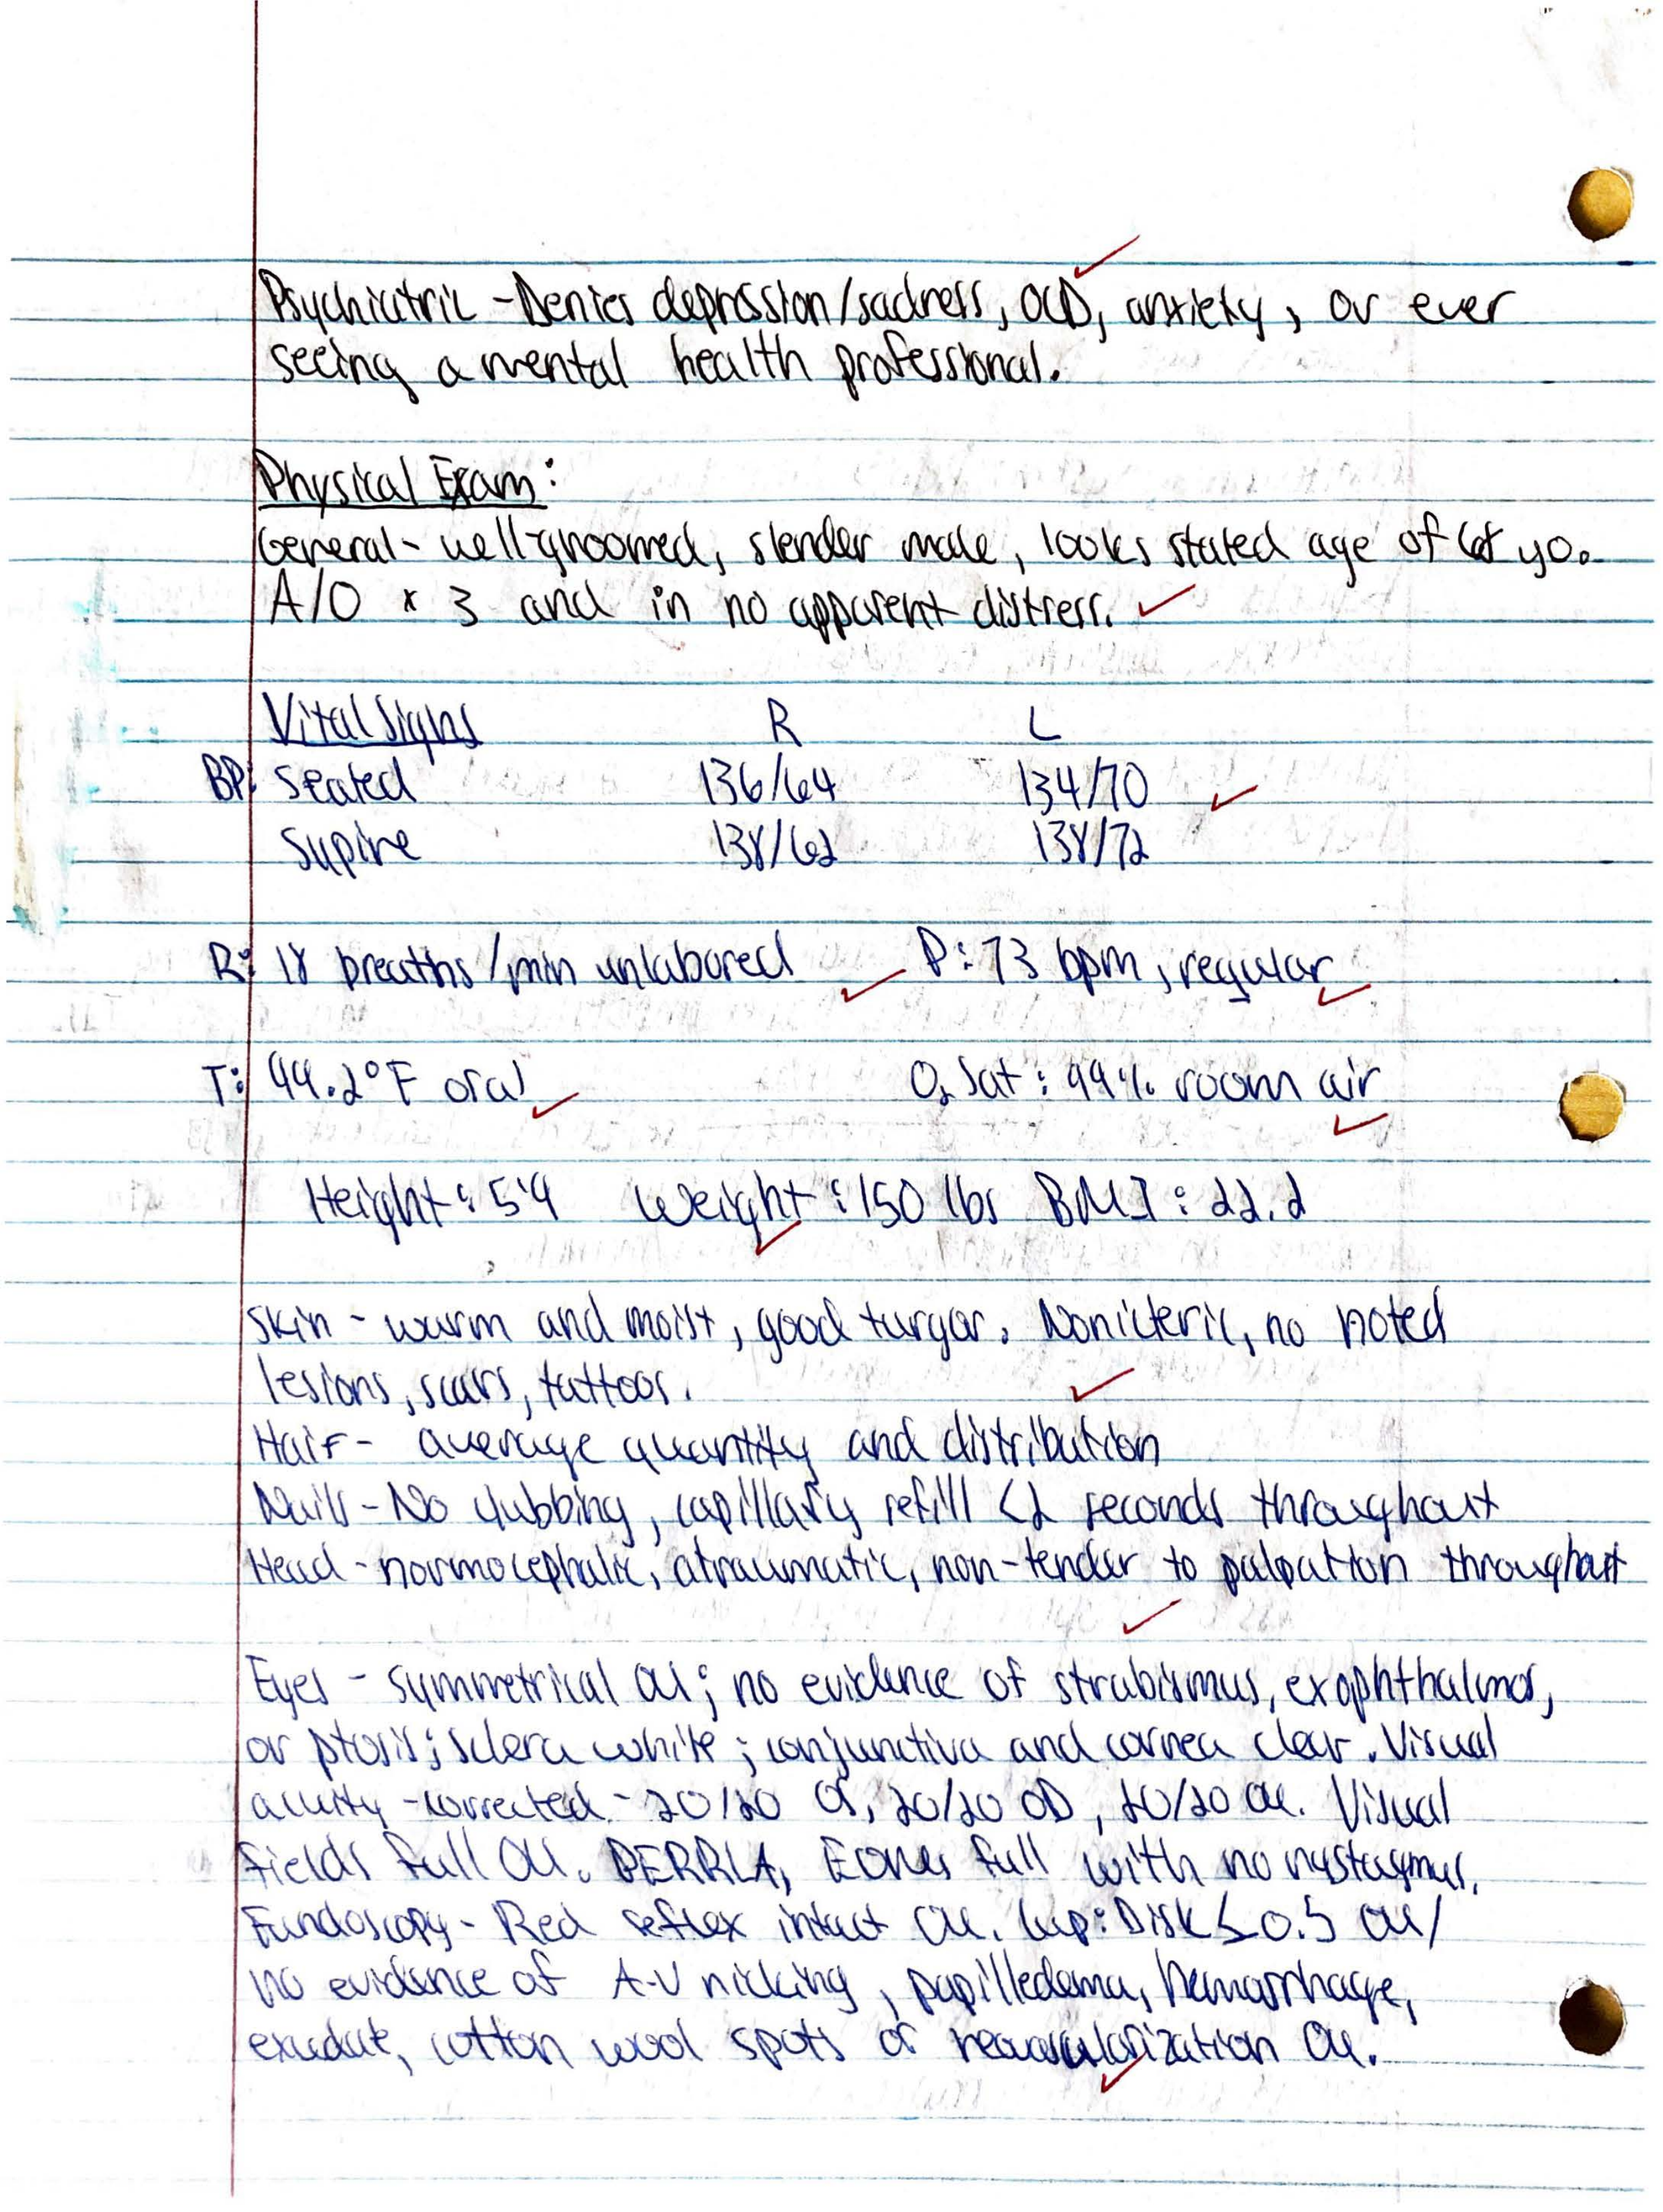 Psychiatric - Denies depression/sadness, OCD, anxiety, or ever
seeing a mental health professional.
Physical Exam:
General - well-groomed, slender male, looks stated age of yo.
A/O x 3 and in no apparent distress.
Vital Signs R L
BP: Seated 136/64 134/70
Supine 138/62 138/72
R: 18 breaths/min unlabored P: 73 bpm, regular
T: 99.2°F oral O2 Sat: 99% room air
Height: 5'9 Weight: 150 lbs BMI: 22.2
Skin - warm and moist, good turgor. Nonicteric, no noted
lesions, scars, tattoos.
Hair - average quantity and distribution
Nails - No clubbing, capillary refill <2 seconds throughout
Head - normocephalic, atraumatic, non-tender to palpation throughout
Eyes - symmetrical OU; no evidence of strabismus, exophthalmos,
or ptosis; sclera white; conjunctiva and cornea clear. Visual
acuity - corrected - 20/20 OS, 20/20 OD, 20/20 OU. Visual
fields full OU. PERRLA, EOMs full with no nystagmus.
Fundoscopy - Red reflex intact OU. Cup: Disk ≤ 0.5 OU/
no evidence of A-V nicking, papilledema, hemorrhage,
exudate, cotton wool spots or neovascularization OU.